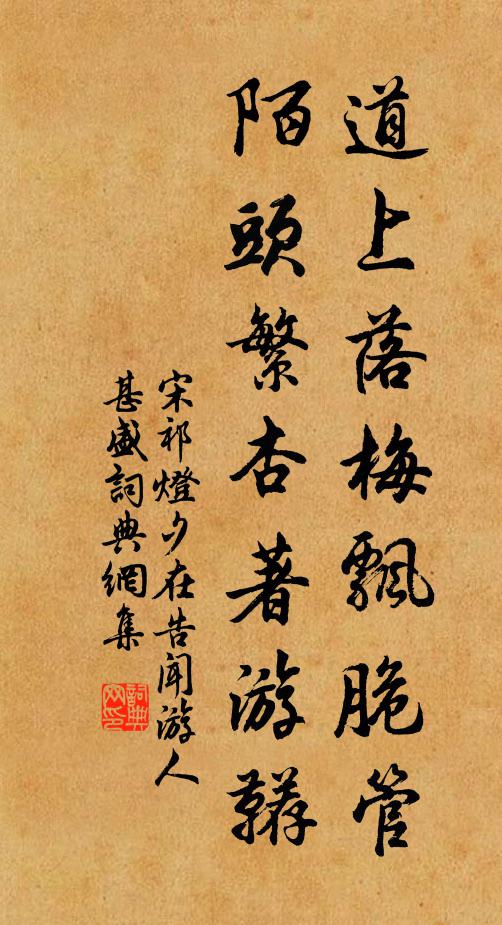 道上落梅飄脆管
陌頭繁杏著游韉
宋祁燈夕在告聞游人
甚盛詞典網集
詞典网印